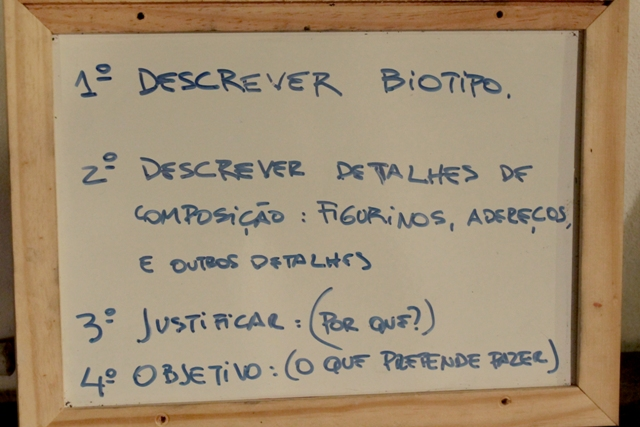 1º DESCREVER BIOTIPO.
2º DESCREVER DETALHES DE
COMPOSIÇÃO: FIGURINOS, ADEREÇOS,
E OUTROS DETALHES
3º JUSTIFICAR: (POR QUE?)
4º OBJETIVO: (O QUE PRETENDE FAZER)